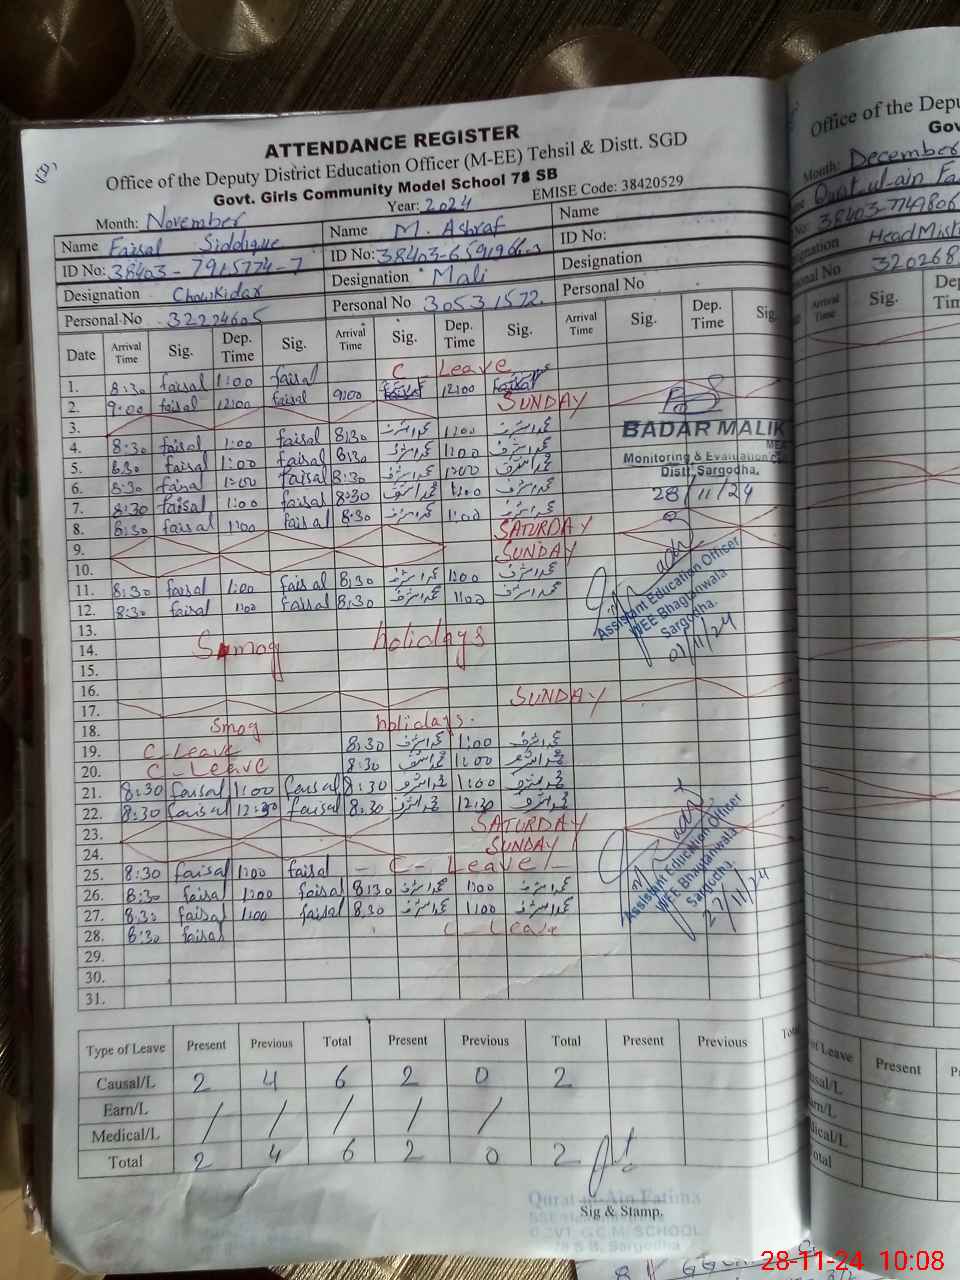 ATTENDANCE REGISTER
Office of the Deputy District Education Officer (M-EE) Tehsil & Distt. SGD
Govt. Girls Community Model School 78 SB
Month: November Year: 2024 EMISE Code: 38420529
Name Faisal Siddique Name M. Ashraf Name
ID No: 38403-7915774-7 ID No: 38403-6591966-3 ID No:
Designation Chowkidar Designation Mali Designation
Personal No 32224605 Personal No 30531572 Personal No
Date Arrival Time Sig. Dep. Time Sig. Arrival Time Sig. Dep. Time Sig. Arrival Time Sig. Dep. Time Sig.
1. 8:30 faisal 1:00 faisal C Leave
2. 9:00 faisal 12:00 faisal 9:00 12:00
3. SUNDAY
4. 8:30 faisal 1:00 faisal 8:30 محمد اشرف 1:00 محمد اشرف
5. 8:30 faisal 1:00 faisal 8:30 محمد اشرف 1:00 محمد اشرف
6. 8:30 faisal 1:00 faisal 8:30 محمد اشرف 1:00 محمد اشرف
7. 8:30 faisal 1:00 faisal 8:30 محمد اشرف 1:00 محمد اشرف
8. 8:30 faisal 1:00 faisal 8:30 محمد اشرف 1:00 محمد اشرف
9. SATURDAY
10. SUNDAY
11. 8:30 faisal 1:00 faisal 8:30 محمد اشرف 1:00 محمد اشرف
12. 8:30 faisal 1:00 faisal 8:30 محمد اشرف 1:00 محمد اشرف
13.
14. Smog holidays
15.
16.
17. SUNDAY
18. Smog holidays.
19. C Leave 8:30 محمد اشرف 1:00 محمد اشرف
20. C-Leave 8:30 محمد اشرف 1:00 محمد اشرف
21. 8:30 faisal 1:00 faisal 8:30 محمد اشرف 1:00 محمد اشرف
22. 8:30 faisal 12:30 faisal 8:30 محمد اشرف 12:30 محمد اشرف
23. SATURDAY
24. SUNDAY
25. 8:30 faisal 1:00 faisal - C- Leave -
26. 8:30 faisal 1:00 faisal 8:30 محمد اشرف 1:00 محمد اشرف
27. 8:30 faisal 1:00 faisal 8:30 محمد اشرف 1:00 محمد اشرف
28. 8:30 faisal C Leave
29.
30.
31.
BADAR MALIK
MEA
Monitoring & Evaluation
Distt. Sargodha.
28/11/24
Assistant Education Officer
WEE Bhagtanwala
Sargodha.
07/11/24
Assistant Education Officer
WEE Bhagtanwala
Sargodha.
27/11/24
Type of Leave Present Previous Total Present Previous Total Present Previous Total
Causal/L 2 4 6 2 0 2
Earn/L / / / / /
Medical/L
Total 2 4 6 2 0 2
Qurat-ul-Ain Fatima
Sig & Stamp.
GOVT. G.C.M. SCHOOL
78 S B, Sargodha
Office of the Depu
Gov
Month: December
Qurat-ul-ain Fa
38403-7749806
Designation Head
Personal No 320268
Arrival Time Sig. Dep. Time
of Leave Present
28-11-24 10:08